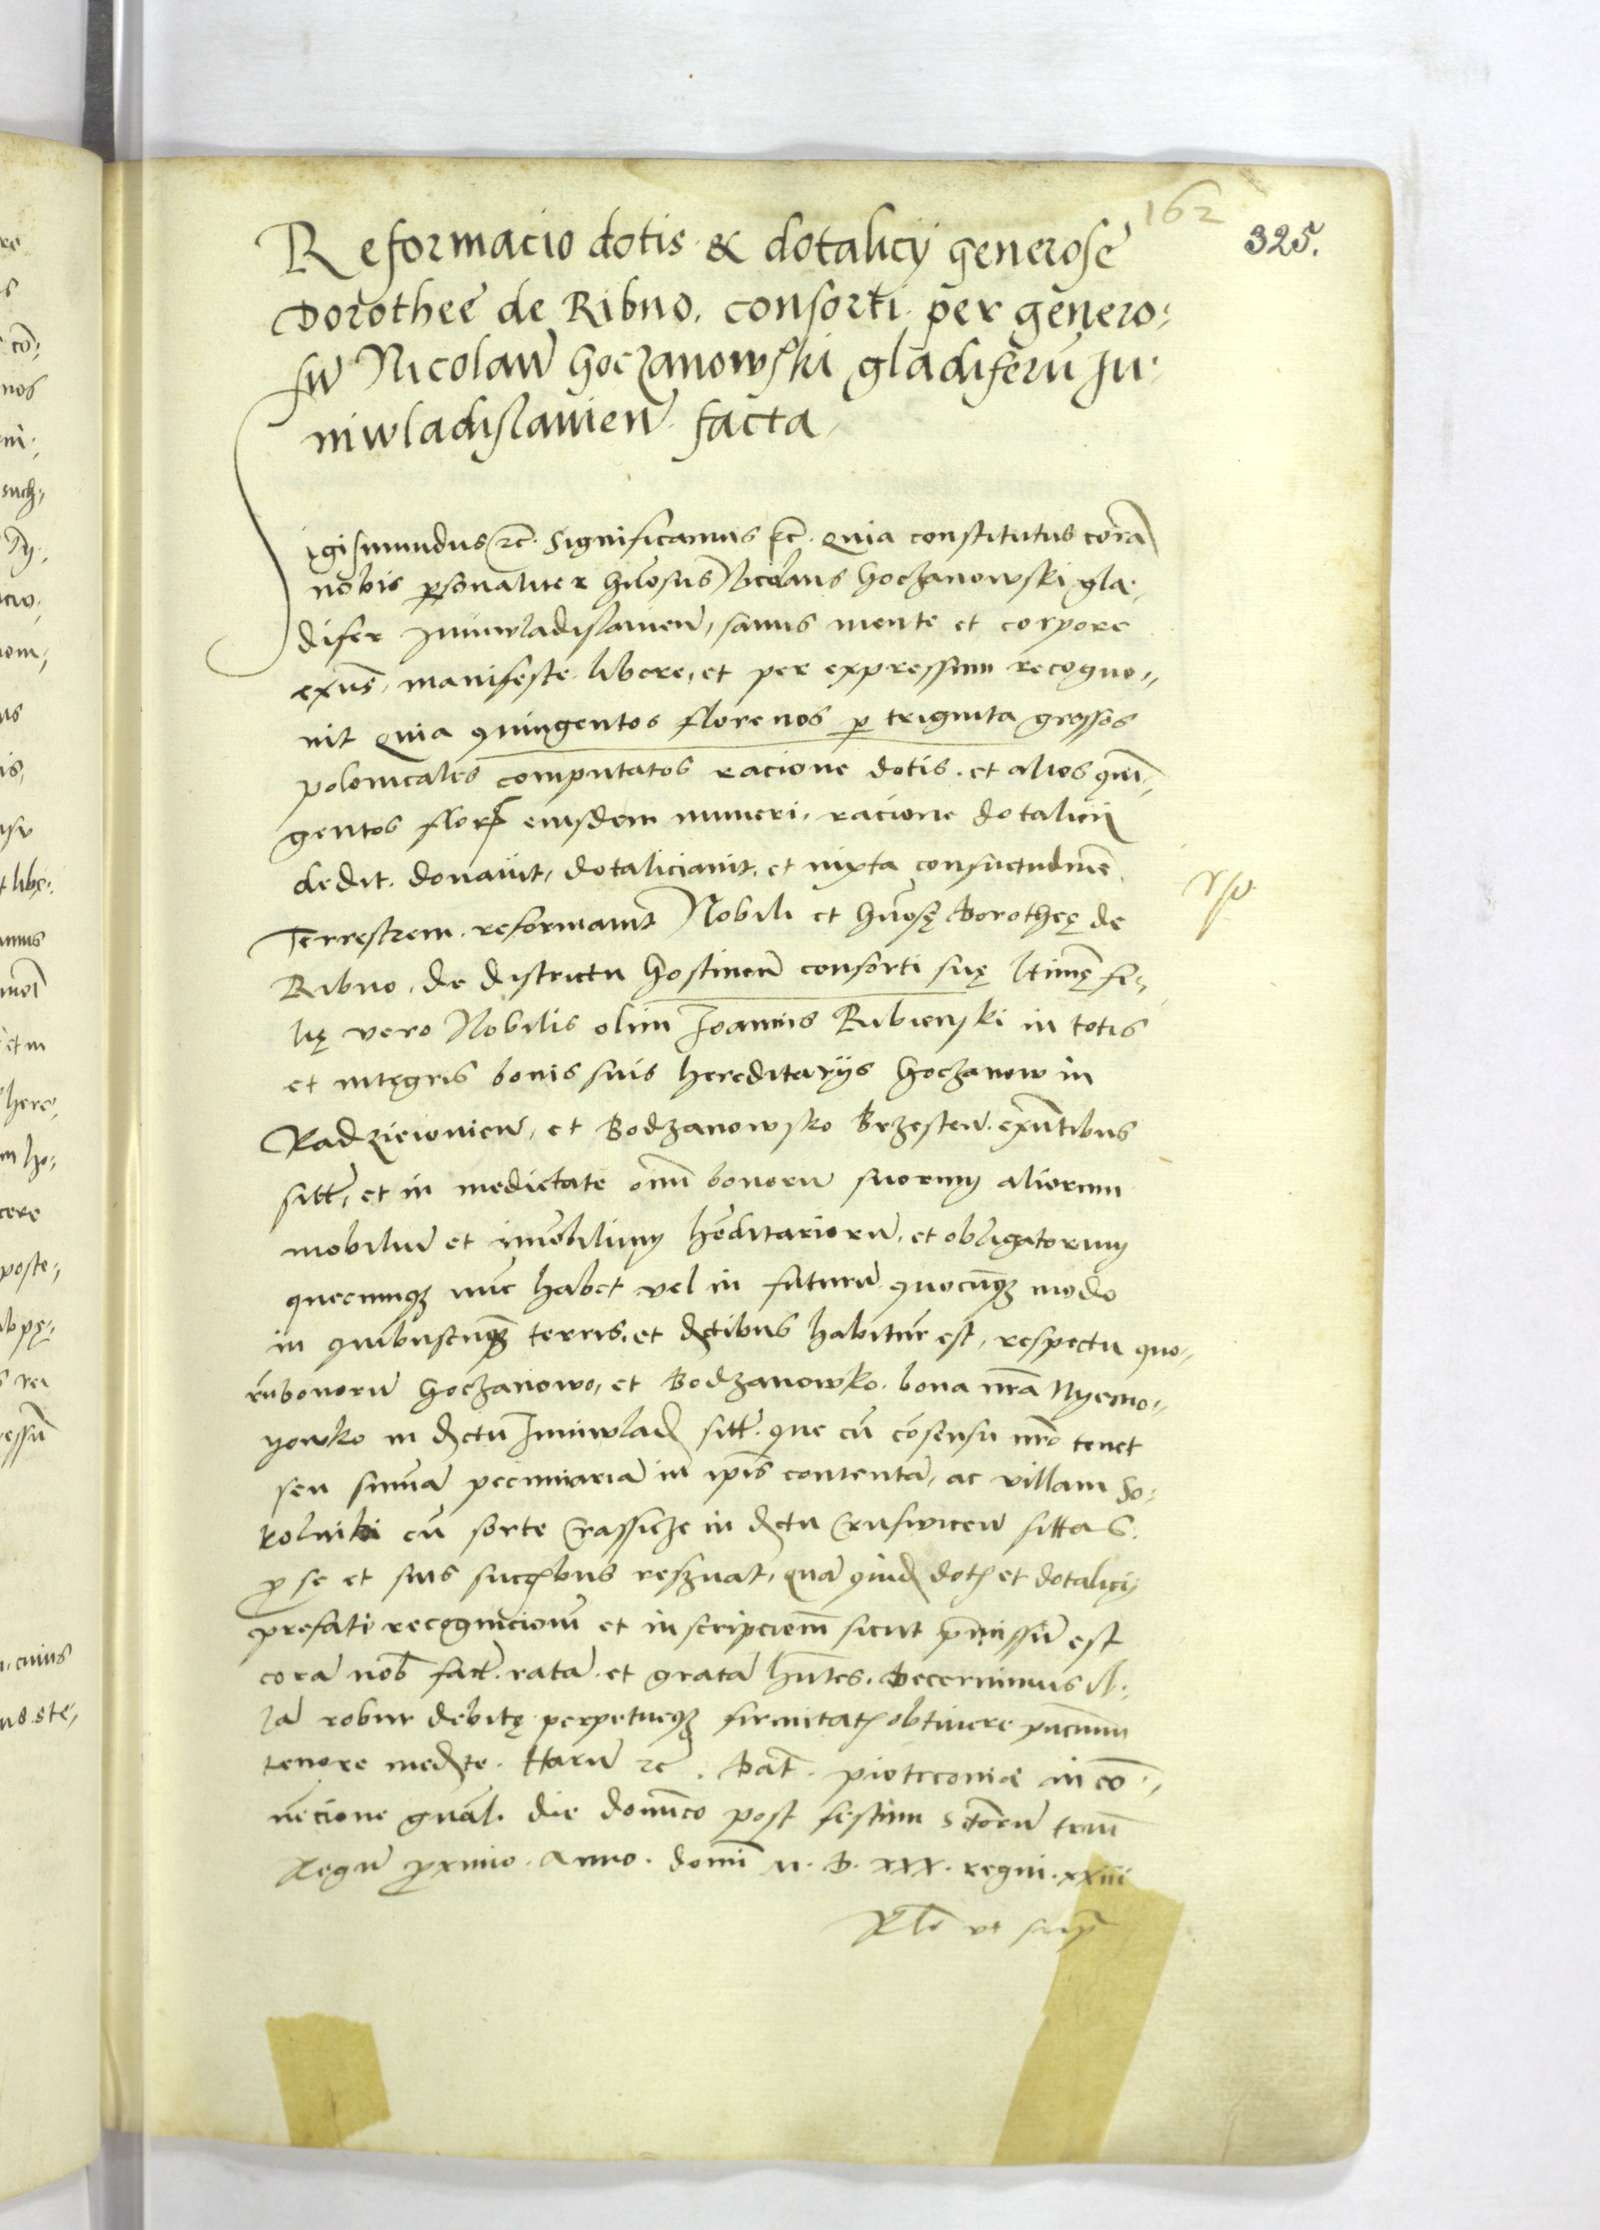 162
325.
Reformacio dotis & dotalicÿ generose
Dorothee de Ribno, consorti per genero-
sũ Nicolaũ Goczanowski gladiferũ Ju-
niwladislauien̄ facta
Sigismundus etc. Significamus etc. Quia constitutus corã
nobis personaliter Gn̄osus Nicolaus Goczanowski gla-
difer Juniwladislauien̄, sanus mente et corpore
exn̄s, manifeste libere, et per expressum recogno-
uit Quia quingentos florenos per triginta grossos
polonicales computatos racione dotis, et alios quĩ-
gentos flor eiusdem numeri, racione dotalicij
dedit, donauit, dotaliciauit, et iuxta consuetudinẽ
Terrestrem reformauit Nobili et Gn̄osę Dorotheę de
Ribno, de districtu Gostinen̄ consorti suę l̄timę fi-
lię vero Nobilis olim Joannis Ribienski in totis
et integris bonis suis hereditarÿs Goczanow in
Radzieiouien̄, et Bodzanowsko Brzesten̄ exn̄tibus
sitt̄, et in medietate om̄ bonorũ suorum aliorum
mobiliũ et im̄obilium hẽditariorũ, et obligatorum
quecunqz nũc habet vel in futurũ quocũqz modo
in quibuscũqz terris, et dctibus habitur̄ est, respectu quo-
rũ bonorũ Goczanowo, et Bodzanowsko, bona nr̃a Nyemo-
yowko in dctu Juniwlad sitt̄. que cũ cõsensu nr̃o tenet
seu sum̄ã pecuniariã in ip̃is contentã, ac villam So-
kolniki cũ sorte Crassicze in dctu Crusvicen̄ sittas.
pro se et suis succ̄bus reseruat, quã quid dotis et dotalicÿ
prefati recognicionẽ et inscripcionẽ sicut p̃missũ est
corã nob fact̄. ratã et gratã hñtes. Decernimus il-
lã robur debitę perpetueqz firmitatis obtinere p̃ncium
tenore med̃te. Harũ etc. Dat̄. piotrconiæ in cõ-
uẽcione gñal. die domĩco post festum sctorũ triũ
Regũ proximo. Anno. domĩ M. D. XXX. regni. xxiiii
Rl̃o vt sup̃